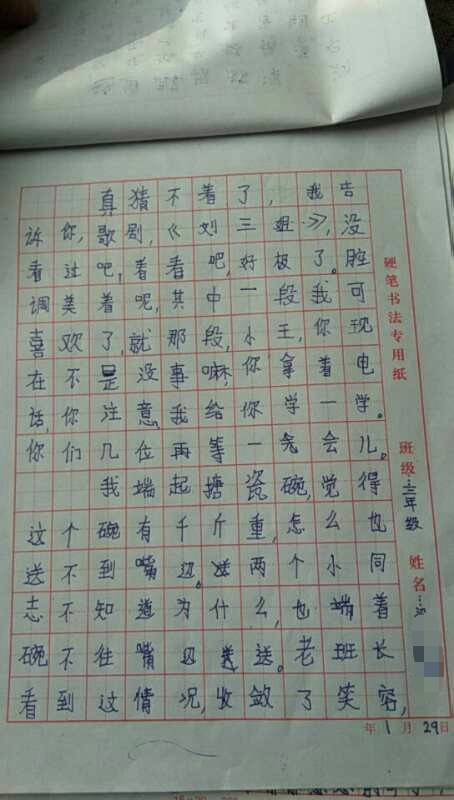 真猜不着了，我告
诉你，歌剧，《刘三姐》，没
看过吧，看看吧，好极了。腔
调美着呢，其中一段我可
喜欢了，就那段，小王，你现
在不是没事嘛，你拿着电
话，你注意，我给你学一学。
你们几位再等一会儿。
我端起搪瓷碗，觉得
这个碗有千斤重，怎么也
送不到嘴边。两个小同
志不知道为什么，也端着
碗不往嘴边送。老班长
看到这情况，收敛了笑容，
硬笔书法专用纸
班级：三年级
姓名：
年1月29日